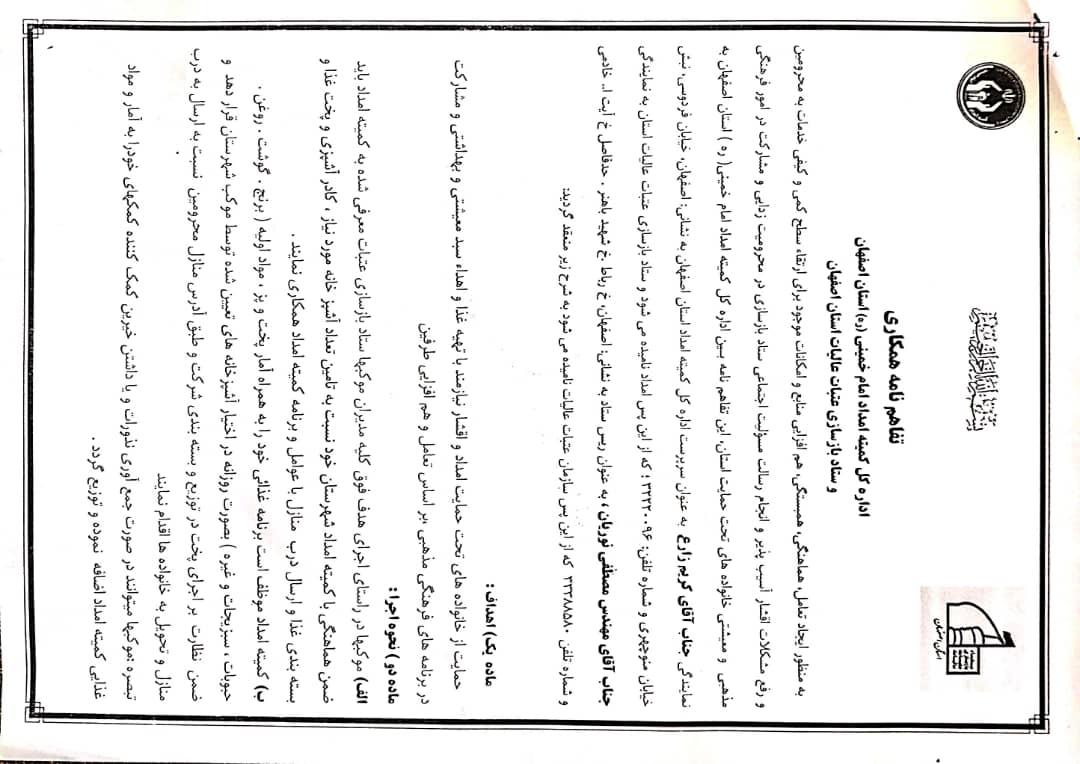 بسم الله الرحمن الرحیم
ستاد
بازسازی
عتبات
عالیات
استان اصفهان
تفاهم نامه همکاری
اداره کل کمیته امداد امام خمینی (ره) استان اصفهان
و ستاد بازسازی عتبات عالیات استان اصفهان
به منظور ایجاد تعامل، هماهنگی، همبستگی، هم افزایی منابع و امکانات موجود برای ارتقاء سطح کمی و کیفی خدمات به محرومین
و رفع مشکلات اقشار آسیب پذیر و انجام رسالت مسؤلیت اجتماعی ستاد بازسازی در محرومیت زدایی و مشارکت در امور فرهنگی
مذهبی و معیشتی خانواده های تحت حمایت استان، این تفاهم نامه بین اداره کل کمیته امداد امام خمینی( ره ) استان اصفهان به
نمایندگی جناب آقای کریم زارع به عنوان سرپرست اداره کل کمیته امداد استان اصفهان به نشانی: اصفهان، خیابان فردوسی، نبش
خیابان منوچهری و شماره تلفن: ۳۲۲۲۰۰۹۶ ؛ که از این پس امداد نامیده می شود و ستاد بازسازی عتبات عالیات استان به نمایندگی
جناب آقای مهندس مصطفی نوریان ، به عنوان ریس ستاد به نشانی: اصفهان، خ رباط .خ شهید باهنر . حدفاصل خ آیت ا.. خادمی
و شماره تلفن ۳۳۳۸۸۵۸۰ که از این پس سازمان عتبات عالیات نامیده می شود به شرح زیر منعقد گردید:
ماده یک) اهداف :
حمایت از خانواده های تحت حمایت امداد و اقشار نیازمند با تهیه غذا و اهداء سبد معیشتی و بهداشتی و مشارکت
در برنامه های فرهنگی مذهبی ،بر اساس تعامل و هم افزایی طرفین
ماده دو ) نحوه اجرا :
الف) موکبها در راستای اجرای هدف فوق کلیه مدیران موکبها ستاد بازسازی عتبات معرفی شده به کمیته امداد باید
ضمن هماهنگی با کمیته امداد شهرستان خود نسبت به تامین تعداد آشپز خانه مورد نیاز ، کادر آشپزی و پخت غذا و
بسته بندی غذا و ارسال درب منازل با عوامل و برنامه کمیته امداد همکاری نمایند .
ب) کمیته امداد موظف است برنامه غذائی خود را به همراه آمار پخت و پز ، مواد اولیه ( برنج . گوشت . روغن .
حبوبات ، سبزیجات و غیره ) بصورت روزانه در اختیار آشپزخانه های تعیین شده توسط موکب شهرستان قرار دهد و
ضمن نظارت بر اجرای پخت در توزیع و بسته بندی شرکت و طبق آدرس منازل محرومین نسبت به ارسال به درب
منازل و تحویل به خانواده ها اقدام نمایند
تبصره :موکبها میتوانند در صورت جمع آوری نذورات و یا داشتن خیرین کمک کننده کمکهای خودرا به آمار و مواد
غذایی کمیته امداد اضافه نموده و توزیع گردد .
۱